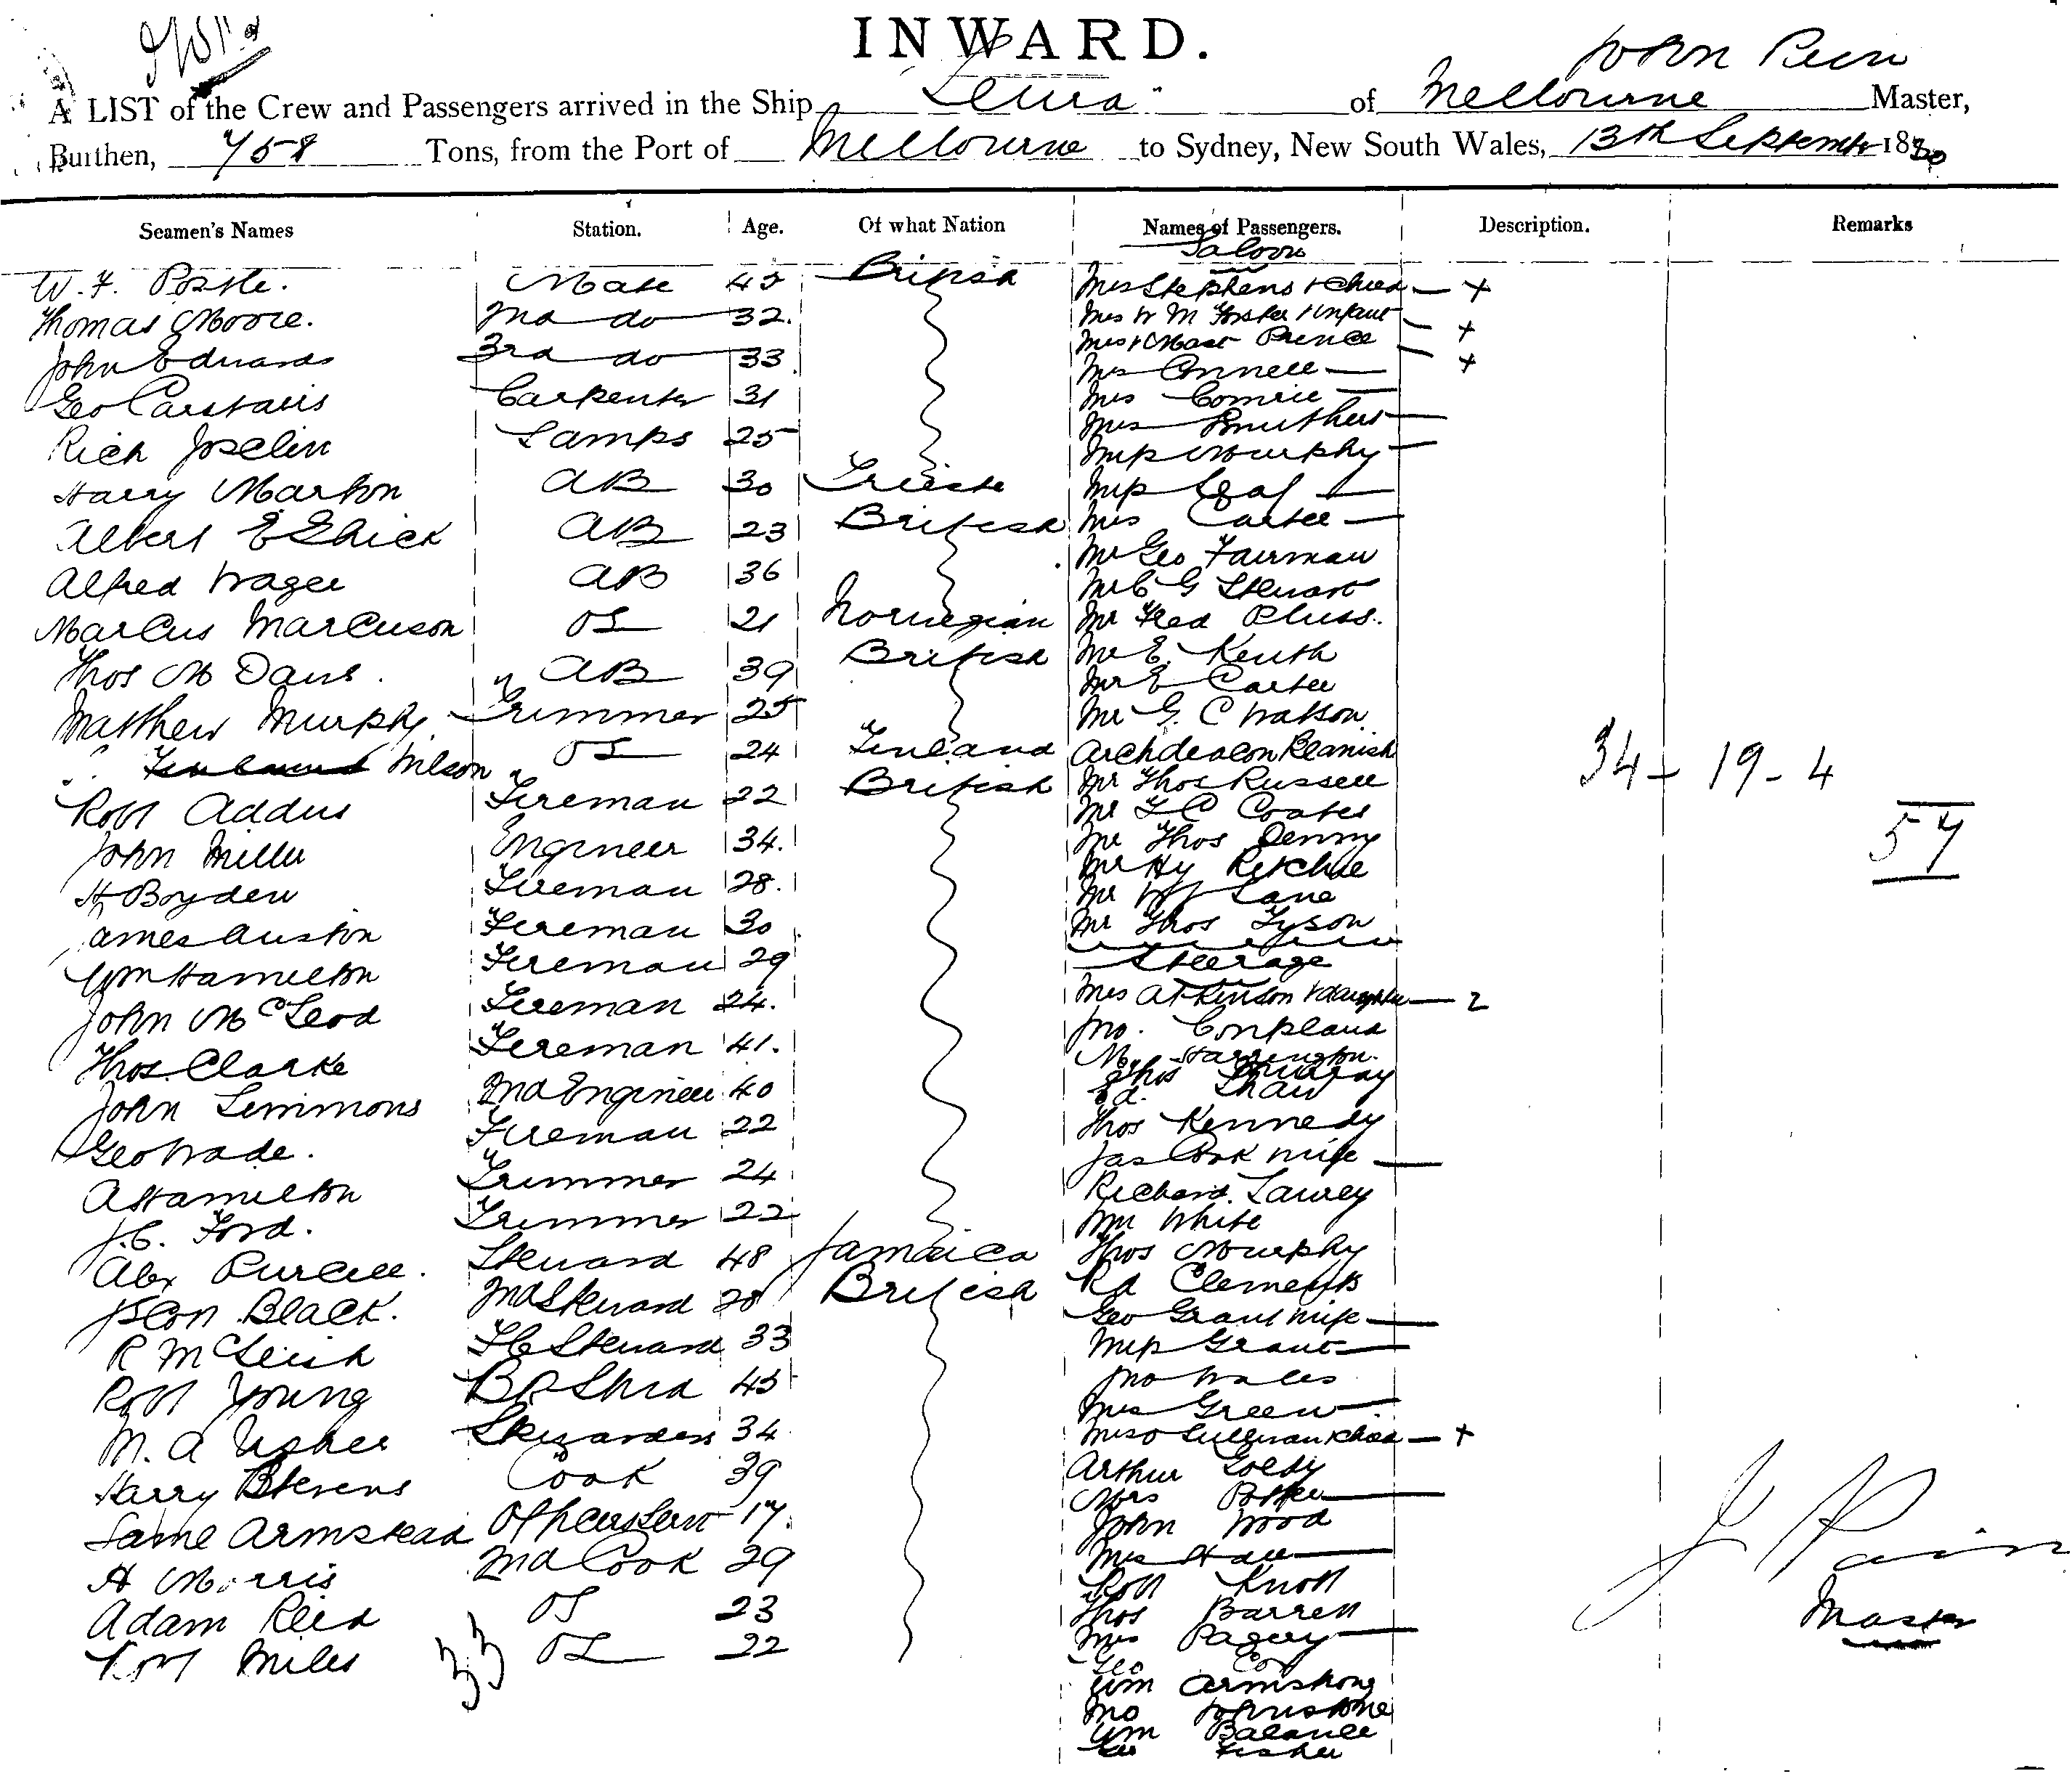 INWARD.
John Pain
A LIST of the Crew and Passengers arrived in the Ship Leura of Melbourne Master,
Burthen, 758 Tons, from the Port of Melbourne to Sydney, New South Wales, 13th September 1890
Seamen's Names Station. Age. Of what Nation Names of Passengers. Description. Remarks
Saloon
W. F. Mate 42 British Mrs Stephens & Child — +
Thomas Moore. 2nd do 32. Mrs W M Forster & Infant — +
John Edwards 3rd do 33 Mrs & Mast Prence — +
Geo Carstairs Carpenter 31 Mrs Connell —
Rich Joselin Lamps 25 Mrs Comrie —
Mrs Smithers —
Miss Murphy —
Harry Marton AB 30 Trieste Miss Leaf —
Albert E AB 23 British Mrs Carter —
Mr Geo Fairman
Alfred Wager AB 36 Mr C G Stewart
Marcus Marcuson OS 21 Norwegian Mr Fred Pluss.
Thos M Davis AB 39 British Mr E. Keith
Mr E Carter
Matthew Murphy Trimmer 25 Mr G. C Watson
Wilson OS 24 Finland Archdeacon
Robt Addus Fireman 22 British Mr Thos Russell
Mr T C Coates
John Miller Engineer 34. Mr Thos Denny
Mr Hy Ritchie
H Boyden Fireman 28. Mr Lane
James Austin Fireman 30 Mr Thos Tyson
34 — 19 - 4
57
Wm Hamilton Fireman 29 Steerage
John McLeod Fireman 24. Mrs Atkinson & daughter — 2
Jno. Coupland
Thos. Clarke Fireman 41. M. Harrington
Thos Murray
John Simmons 2nd Engineer 40 Ed. Shaw
Geo Wade. Fireman 22 Thos Kennedy
Jas Cook wife —
A Hamilton Trimmer 24 Richard. Lawrey
J. C. Ford. Trimmer 22 Wm White
Alex Purcell. Steward 48 Jamaica Thos Murphy
Black. 2nd Steward 28 British Rd Clements
Geo Grant wife —
R McLeish F C Steward 33 Miss Grant —
Robt Young B R Stwd 45 Jno Wales
Mrs Green —
M. A Usher Stewardess 34 Mrs O Sullivan & child — +
Harry Stevens Cook 39 Arthur Goldy
Mrs Potter —
Armstead Officers Servt 17. John Wood
H Morris 2nd Cook 29 Mrs Hall —
Robt Knott
Adam Reid OS 23 Thos Barrett
Robt Miles OS 22 Mrs Pagery —
33
Geo Cox
Wm Armstrong
Jno Johnstone
Wm Balance
Geo Fisher
J Pain
Master